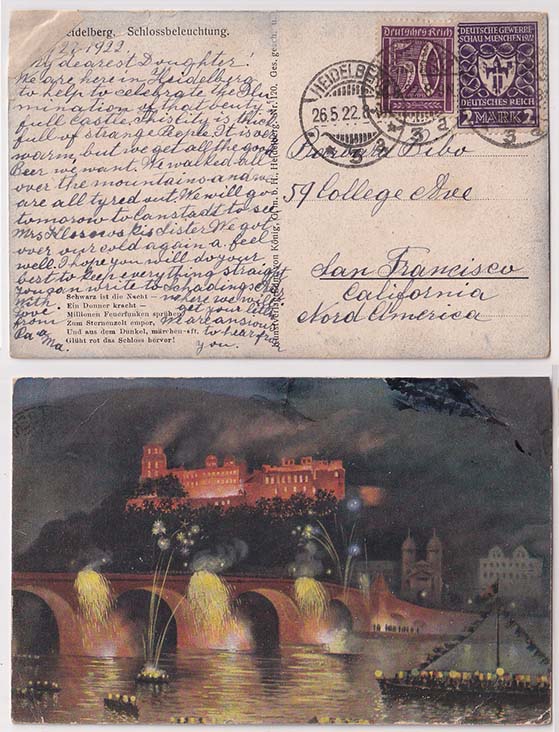 Heidelberg. Schlossbeleuchtung.
28-1922
My dearest Doughter.
We are here in Heidelberg
to help to celebrate the Illu
mination of that beuty
full Castle. This City is thick
full of strange People. It is over
warm, but we get all the good
Beer we want. We walked all
over the mountains and we
are all tyred out. We will go
tomorow to Canstadt to see
Mrs Klosowskis sister. We got
over our cold again a. feel
well. I hope you will do your
best to keep everything straight
You can write to Schading
With
where we will
Love
get your letter
from
We are anxious
Pa a
to hear from
Ma.
you.
Schwarz ist die Nacht —
Ein Donner kracht —
Millionen Feuerfunken sprühen
Zum Sternenzelt empor,
Und aus dem Dunkel, märchen-
Glüht rot das Schloss hervor!
Kunstverlag von König, G. m. b. H., Heidelberg Nr. 120. Ges. gesch.
Deutsches Reich
50
DEUTSCHE GEWERBE-
SCHAU MUENCHEN 1922
DEUTSCHES REICH
2 MARK 2
HEIDELBERG
26.5.22.8-
* 3 a
Barbara Bibo
59 College Ave
San Francisco
California
Nord America